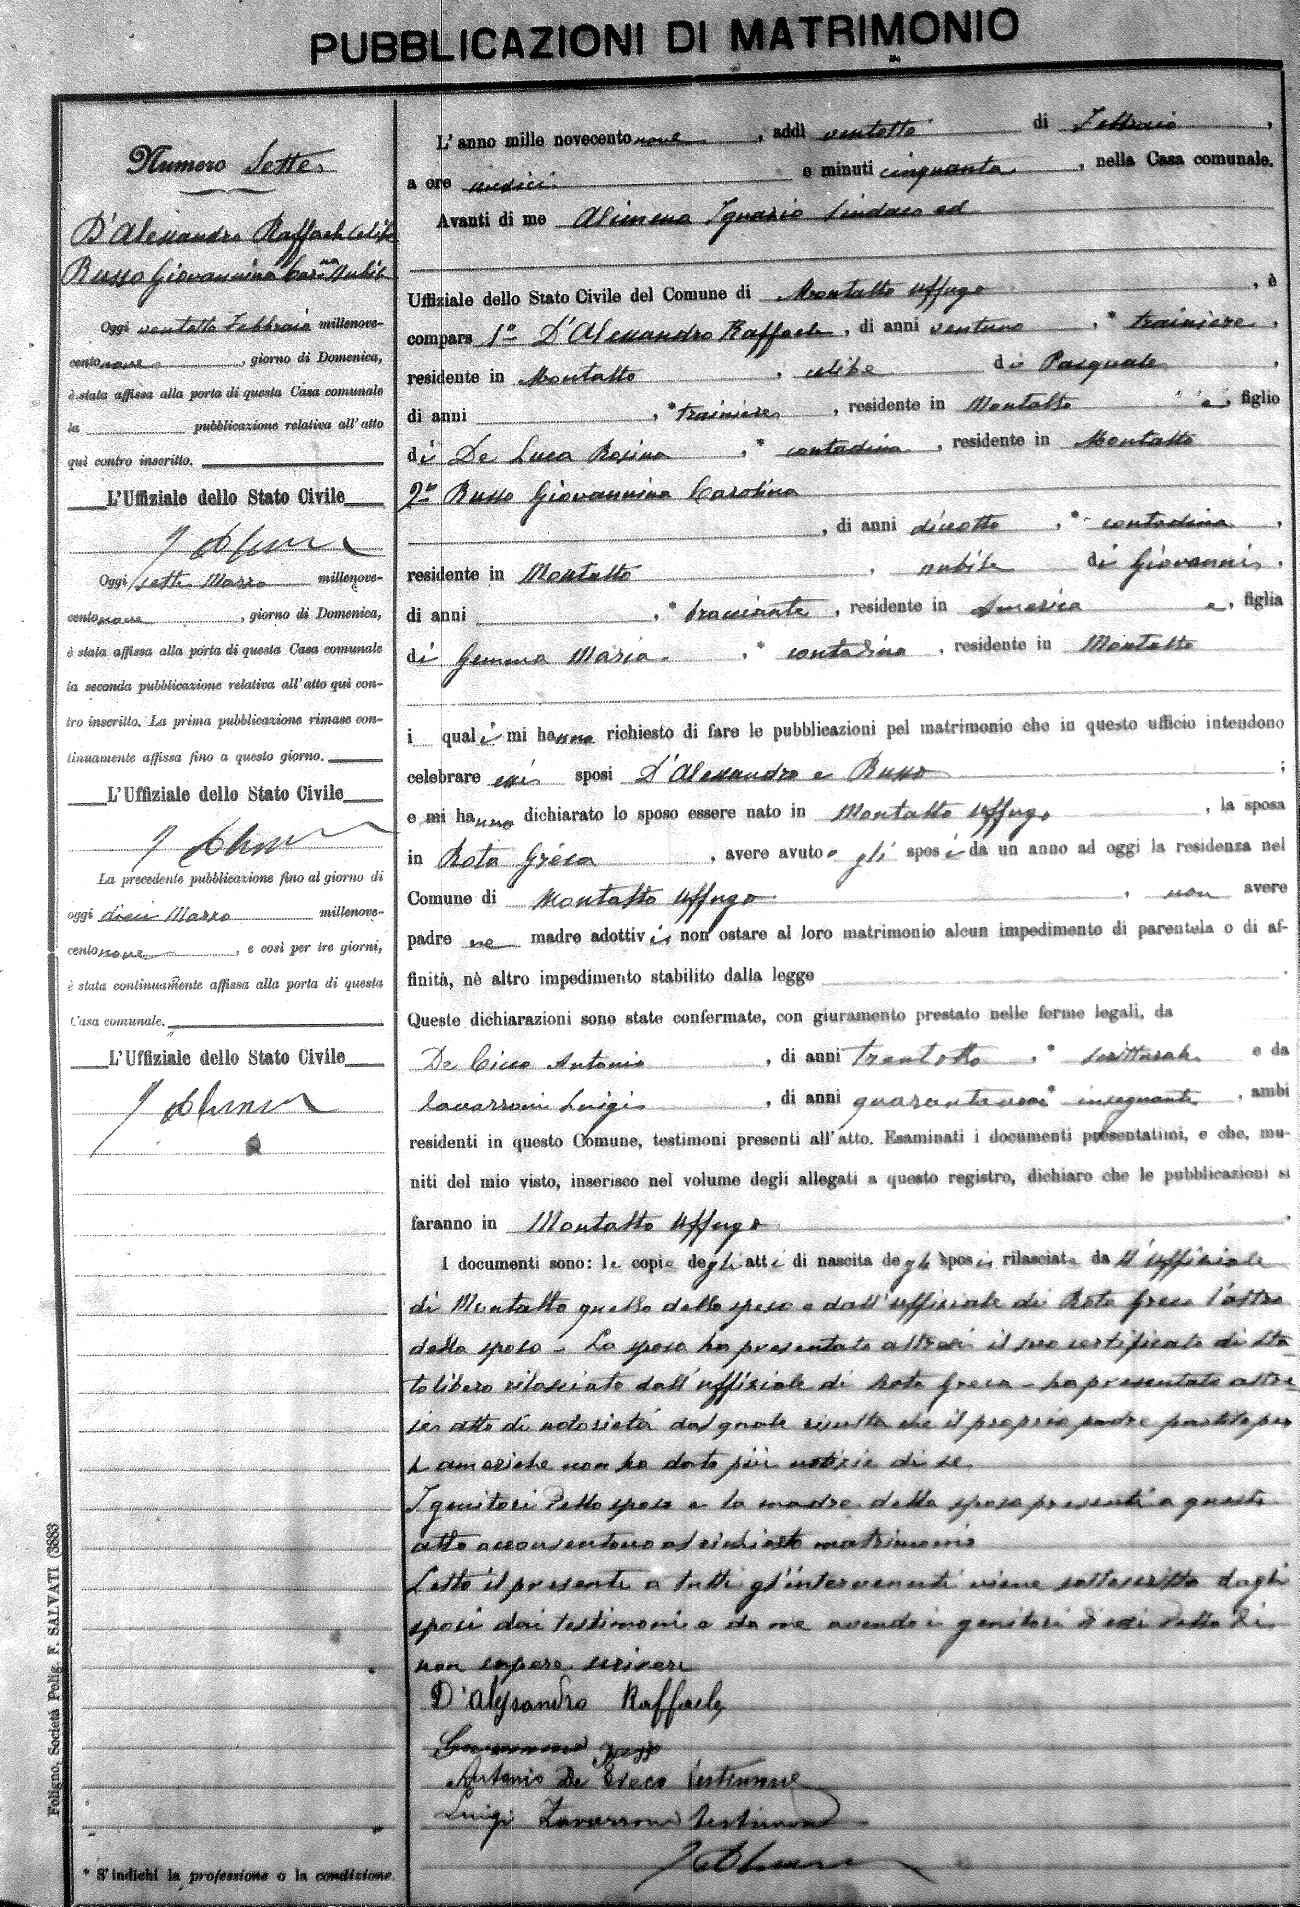 PUBBLICAZIONI DI MATRIMONIO
Numero Sette
D'Alessandro Raffaele celibe
Russo Giovannina Car.na nubile
Oggi ventotto Febbraio millenove-
cento nove, giorno di Domenica,
è stata affissa alla porta di questa Casa comunale
la pubblicazione relativa all'atto
quì contro inscritto.
L'Uffiziale dello Stato Civile
Oggi sette Marzo millenove-
cento nove, giorno di Domenica,
è stata affissa alla porta di questa Casa comunale
la seconda pubblicazione relativa all'atto quì con-
tro inscritto. La prima pubblicazione rimase con-
tinuamente affissa fino a questo giorno.
L'Uffiziale dello Stato Civile
La precedente pubblicazione fino al giorno di
oggi dieci Marzo millenove-
cento nove, e così per tre giorni,
è stata continuamente affissa alla porta di questa
Casa comunale.
L'Uffiziale dello Stato Civile
* S'indichi la professione o la condizione.
Foligno, Società Polig. F. SALVATI (3883
L'anno mille novecento nove, addì ventotto di Febbraio,
a ore undici e minuti cinquanta, nella Casa comunale.
Avanti di me Alimena Ignazio Sindaco ed
Uffiziale dello Stato Civile del Comune di Montalto Uffugo, è
compars 1º D'Alessandro Raffaele, di anni ventuno, * trainiere,
residente in Montalto, celibe di Pasquale,
di anni , * trainiere, residente in Montalto e, figlio
di De Luca Rosina, * contadina, residente in Montalto
2º Russo Giovannina Carolina
, di anni diciotto, * contadina,
residente in Montalto, nubile di Giovanni,
di anni , * bracciante, residente in America e, figlia
di Gemma Maria, * contadina, residente in Montalto
i quali mi hanno richiesto di fare le pubblicazioni pel matrimonio che in questo ufficio intendono
celebrare essi sposi D'Alessandro e Russo;
e mi hanno dichiarato lo sposo essere nato in Montalto Uffugo, la sposa
in Rota Greca, avere avuto gli sposi da un anno ad oggi la residenza nel
Comune di Montalto Uffugo, non avere
padre ne madre adottivi, non ostare al loro matrimonio alcun impedimento di parentela o di af-
finità, nè altro impedimento stabilito dalla legge.
Queste dichiarazioni sono state confermate, con giuramento prestato nelle forme legali, da
De Cicco Antonio, di anni trentotto, * scritturale e da
Zavarroni Luigi, di anni * insegnante, ambi
residenti in questo Comune, testimoni presenti all'atto. Esaminati i documenti presentatimi, e che, mu-
niti del mio visto, inserisco nel volume degli allegati a questo registro, dichiaro che le pubblicazioni si
faranno in Montalto Uffugo.
I documenti sono: le copie degli atti di nascita degli sposi rilasciate da ll'uffiziale
di Montalto quello dello sposo e dall'uffiziale di Rota Greca l'altro
della sposa - La sposa ha presentato altresì il suo certificato di sta
to libero rilasciato dall'uffiziale di Rota Greca - ha presentato altre
sì atto di notorietà dal quale risulta che il proprio padre partito per
l'americhe non ha dato più notizie di se.
I genitori dello sposo e la madre della sposa presenti a questo
atto acconsentono al richiesto matrimonio
Letto il presente a tutti gl'intervenuti viene sottoscritto dagli
sposi dai testimoni e da me avendo i genitori d'essi detto di
non sapere scrivere
D'Alessandro Raffaele
Antonio De Cicco testimone
Luigi Zavarroni testimone